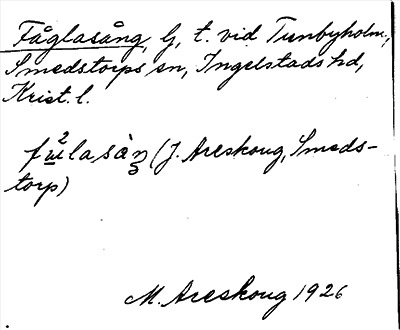 Fåglasång, lj, t. vid Tunbyholm,
Smedstorps sn, Ingelstads hd,
Krist. l.
(J. Areskoug, Smeds-
torp)
M. Areskoug 1926